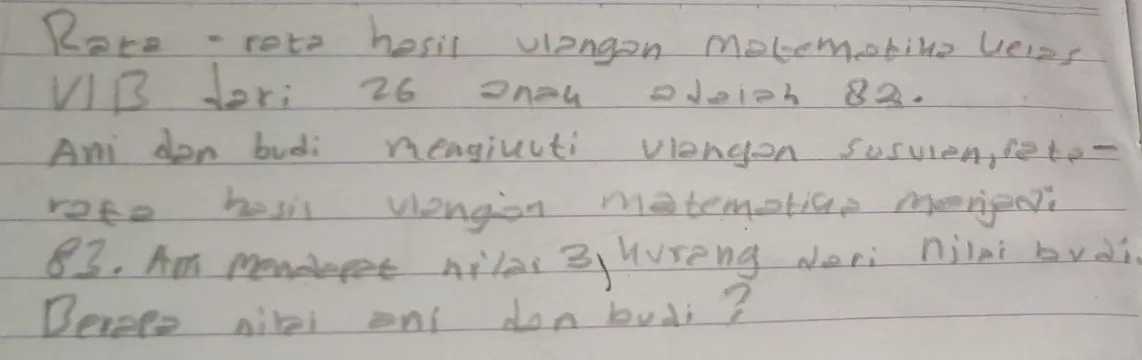 Rata - rata hasil ulangan matematika kelas
VIB dari 26 anak adalah 82.
Ani dan budi mengikuti ulangan susulan, rata-
rata hasil ulangan matematika menjadi
83. Ani mendapat nilai 3, kurang dari nilai budi.
Berapa nilai ani dan budi?